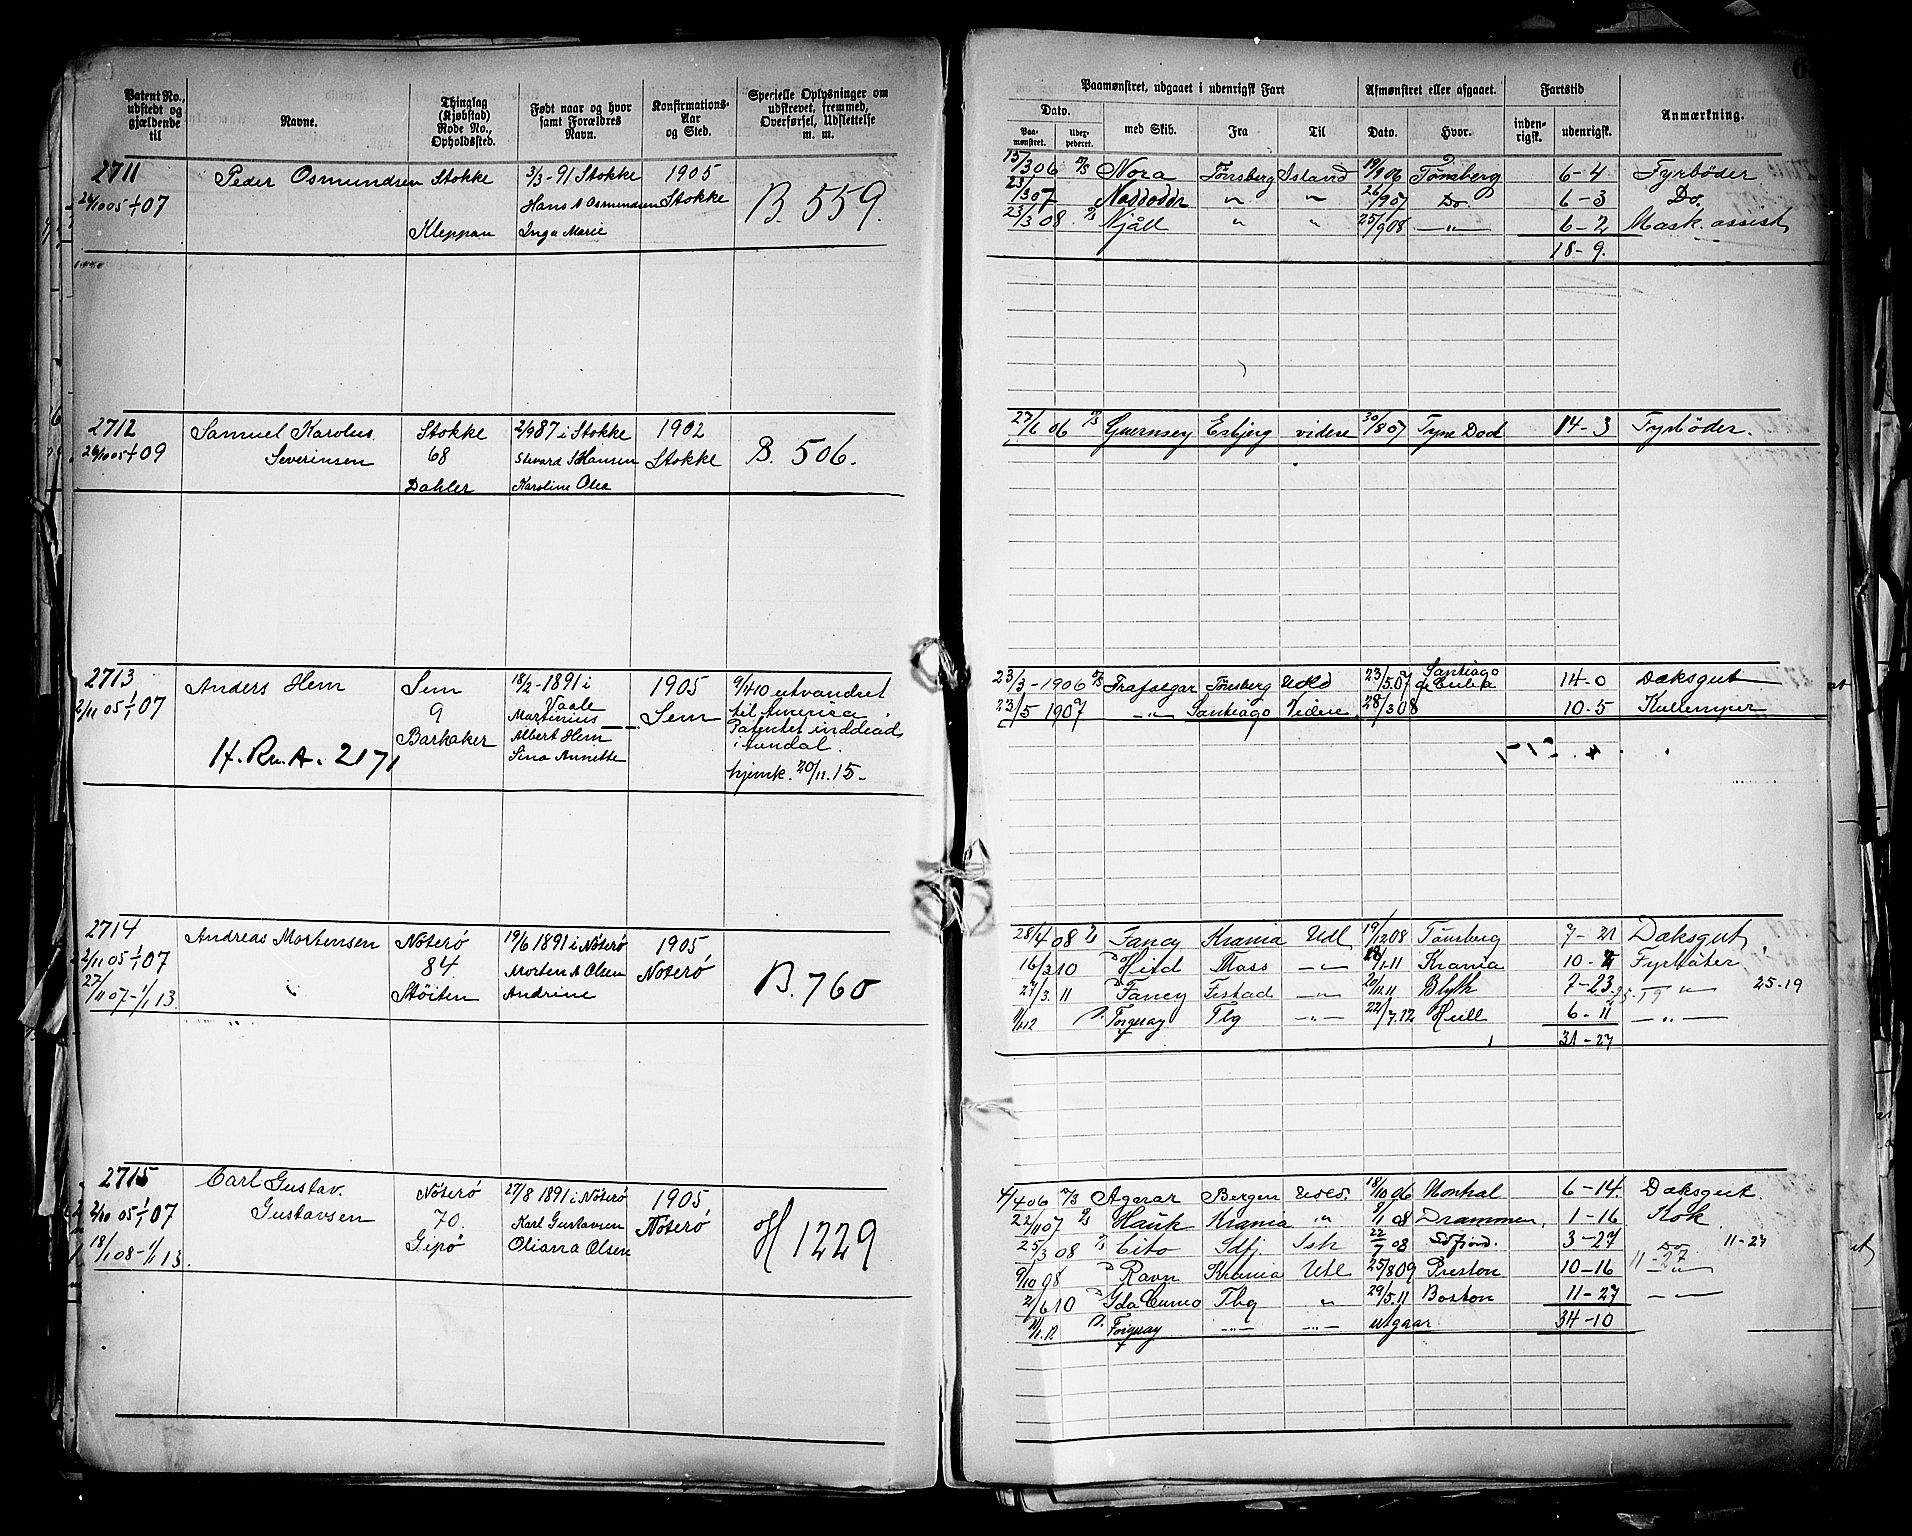 Patent No., udstedt og gjældende til
Navne.
Thinglag (Kjøbstad) Rode No., Opholdssted.
Født naar og hvor samt Forældres Navn.
Konfirmations-Aar og Sted.
Specielle Oplysninger om udskrevet, fremmed, Overførsel, Udslettelse m. m.
2711
24/10 05 1/1 07
Peder Osmundsen
Stokke
Kleppan
3/3-91 Stokke
Hans A Osmundsen
Inga Marie
1905
Stokke
B. 559.
2712
26/10 05 1/1 09
Samuel Karolus
Severinsen
Stokke
68
Dahler
2/9 87 i Stokke
Stevard S Hansen
Karoline Olea
1902
Stokke
B. 506.
2713
2/11 05 1/1 07
Anders Hem
H. Ru. A. 2171
Sem
9
Barkaker
18/2-1891 i
Vaale
Martinius
Albert Hem
Sina Annette
1905
Sem
9/4 10 utvandret
til America.
Patentet inddead
i Arendal.
hjemk. 20/11. 15.-
2714
2/11 05 1/1 07
27/11 07-1/1 13
Andreas Mortensen
Nøterø
84.
Støiten
19/6 1891 i Nøterø
Morten A Olsen
Andrine
1905
Nøterø
B. 760
2715
2/10 05 1/1 07
18/1 08-1/1 13.
Carl Gustav.
Gustavsen
Nøterø
70.
Gipø
27/8 1891 i Nøterø
Karl Gustavsen
Oliana Olsen
1905
Nøterø
H 1229
Paamønstret, udgaaet i udenrigsk Fart
Afmønstret eller afgaaet.
Fartstid
Anmærkning.
Dato.
Paamønstret.
med Skib.
Fra
Til
Dato.
Hvor.
indenrigsk.
udenrigsk.
15/3 06 Nora Tønsberg Island 19/9 06 Tønsberg 6-4 Fyrbøder
23/3 07 Naddoddr " " 26/9 07 Do 6-3 Do.
23/3 08 Njåll " " 25/9 08 -"- 6-2 Mask. assist
18-9.
27/6 06 Guernsey Esbjerg videre 30/8 07 Tyne Dock 14-3 Fyrbøder.
23/3-1906 Trafalgar Tønsberg Utld 23/5.07 Santiago de Cuba 14-0 Daksgut
23/5 1907 -"- Santiago Videre 28/3 08 10-5 Kullemper
28/4 08 Fancy Krania Utl 19/12 08 Tønsberg 7-21 Daksgut
16/3 10 Hird Moss -"- 1.11 Krania 10- Fyrbøter
27/3. 11 Fancy -"- 20/11.11 Blyth 7-23. " 25-19
25-19
11/1 12 Torquay Tbg -"- 22/7.12 Hull 6-11 -"-
31-27
4/4 06 Agarar Bergen Utld. 18/10 06 6-14. Daksgut.
22/11 07 Hauk Krania " 8/1 08 Drammen. 1-16 Kok
25/3 08 Cito Sdfj. Ish 22/7 08 Sdfjord. 3-27 Do 11-27
11-27
9/10 08 Ravn Krania Utl 25/8 09 Preston 10-16 -"-
2/6 10 Ida Cuneo Tbg " 29/5.11 Boston 11-27 -"-
11/1. 12 Torquay -"- -"- utgaar 34-10